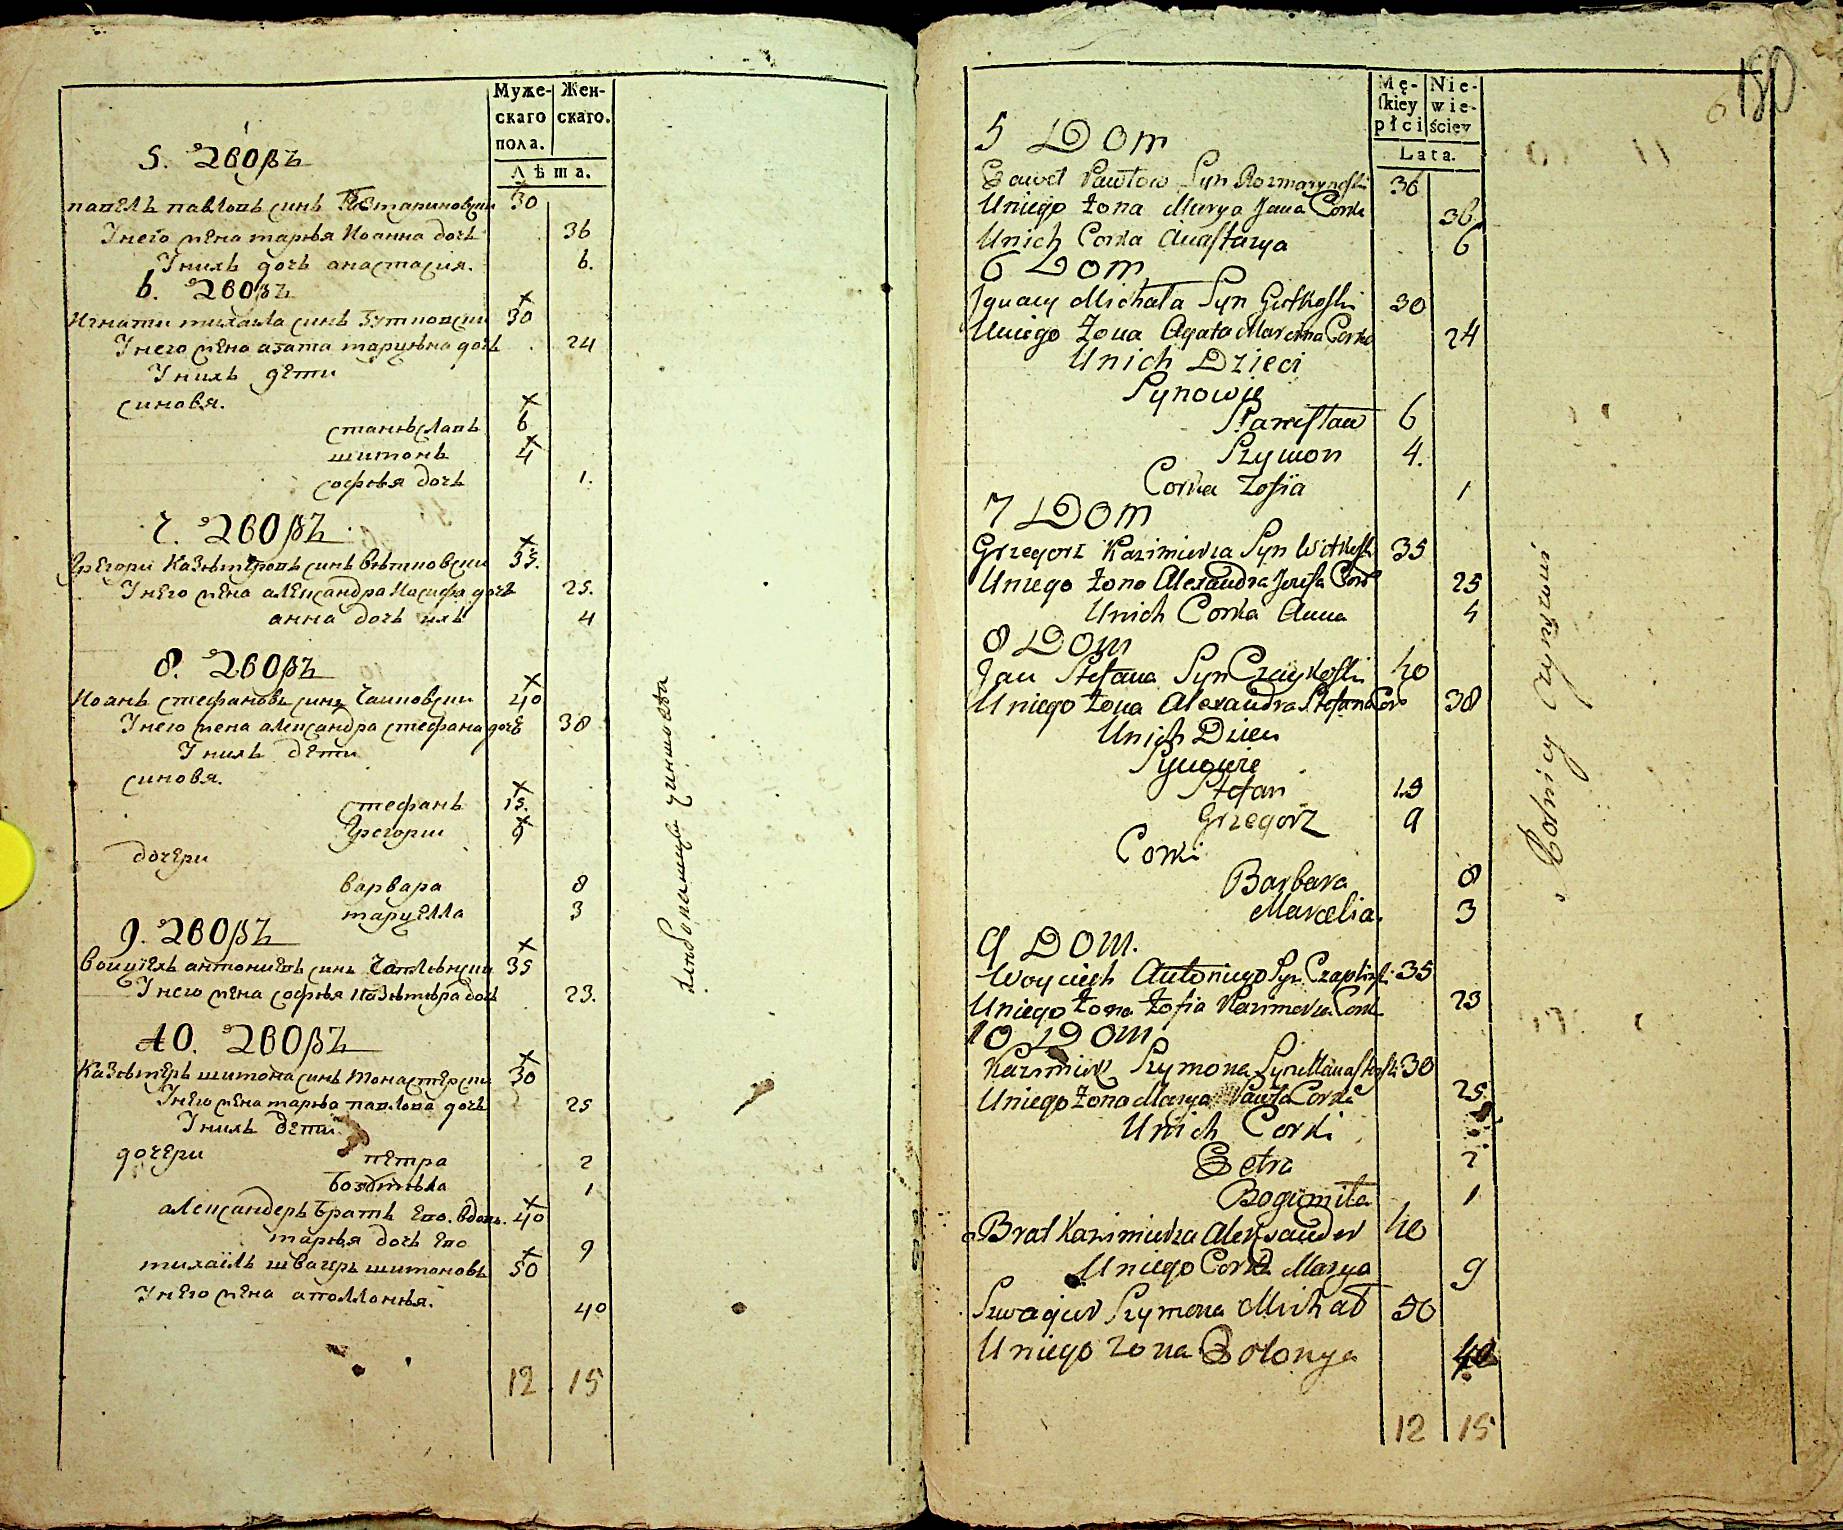 Муже- Жен-
скаго скаго.
пола.
Лѣта.
5. Дворъ
павелъ павловъ синъ 30
У него жена марья Иоанна дочь 36
У нихъ дочь анастасия. 6.
6. Дворъ
Игнати михаила синъ Гутковски 30
У него жена агата марцѣна дочь 24
У нихъ дѣти
синовя.
станѣславъ 6
шимонъ 4
софья дочь 1.
7. Дворъ
Грегори Казѣмѣровъ синъ вѣтковски 35.
У него жена александра Иосифа дочь 25.
анна дочь ихъ 4
8. Дворъ
Иоанъ стефановъ синъ Чаиковски 40
У него жена александра стефана дочь 38
У нихъ дети
синовя.
стефанъ 15.
Грегории 9
дочери
варвара 8
марцелла 3
9. Дворъ
воицехъ антониевъ синъ Чаплѣнски 35
У него жена софья Казѣмѣра дочь 23.
10. Дворъ
Казѣмеръ шимона синъ монастерски 30
У него жена марья павлова дочь 25
У нихъ дети
дочери петра 2
1
александеръ братъ его. вдовъ. 40
марья дочь его 9
михаилъ швагеръ шимоновъ 50
У него жена аполлонья. 40
12 15
хлѣбопашцы чиншова
180
6
Mę- Nie-
skiey wie-
płci ściey
Lata.
5 Dom
Paweł Pawłow Syn 36
Uniego żona Marya Jana Corka 36
Unich Corka Anastazya 6
6 Dom
Ignacy Michała Syn Gutkoski 30
Uniego żona Agata Marcina Corka 24
Unich Dzieci
Synowie
Stanisław 6
Szymon 4.
Corka Zofia 1
7 Dom
Grzegorz Kazimierza Syn Witkoski 35
Uniego żona Alexandra Jozefa Corka 25
Unich Corka Anna 4
8 Dom
Jan Stefana Syn Czaykoski 40
Uniego żona Alexandra Stefana Cor 38
Unich Dzieci
Synowie
Stefan 15
Grzegorz 9
Corki
Barbara 8
Marcelia. 3
9 Dom.
Woyciech Antoniego Syn Czaplinski 35
Uniego żona Zofia Kazimierza Corka 23
10 Dom
Kazimierz Szymona Syn Manasterski 30
Uniego żona Marya Pawła Corka 25.
Unich Corki
Petra 2
Bogumiła 1
Brat Kazimierza Alexander 40
Uniego Corka Marya 9
Szwagier Szymona Michał 50
Uniego zona Polonya 40
12 15
Rolnicy czynszowi